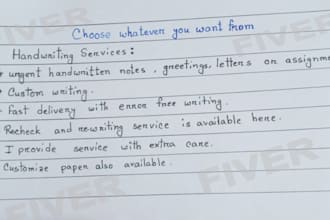 Choose whatever you want from
Handwriting Services:
urgent handwritten notes, greetings, letters or assignm
Custom writing.
Fast delivery with error free writing.
Recheck and rewriting service is available here.
I provide service with extra care.
Customize paper also available.
FIVER
FIVER
FIVER
FIVER